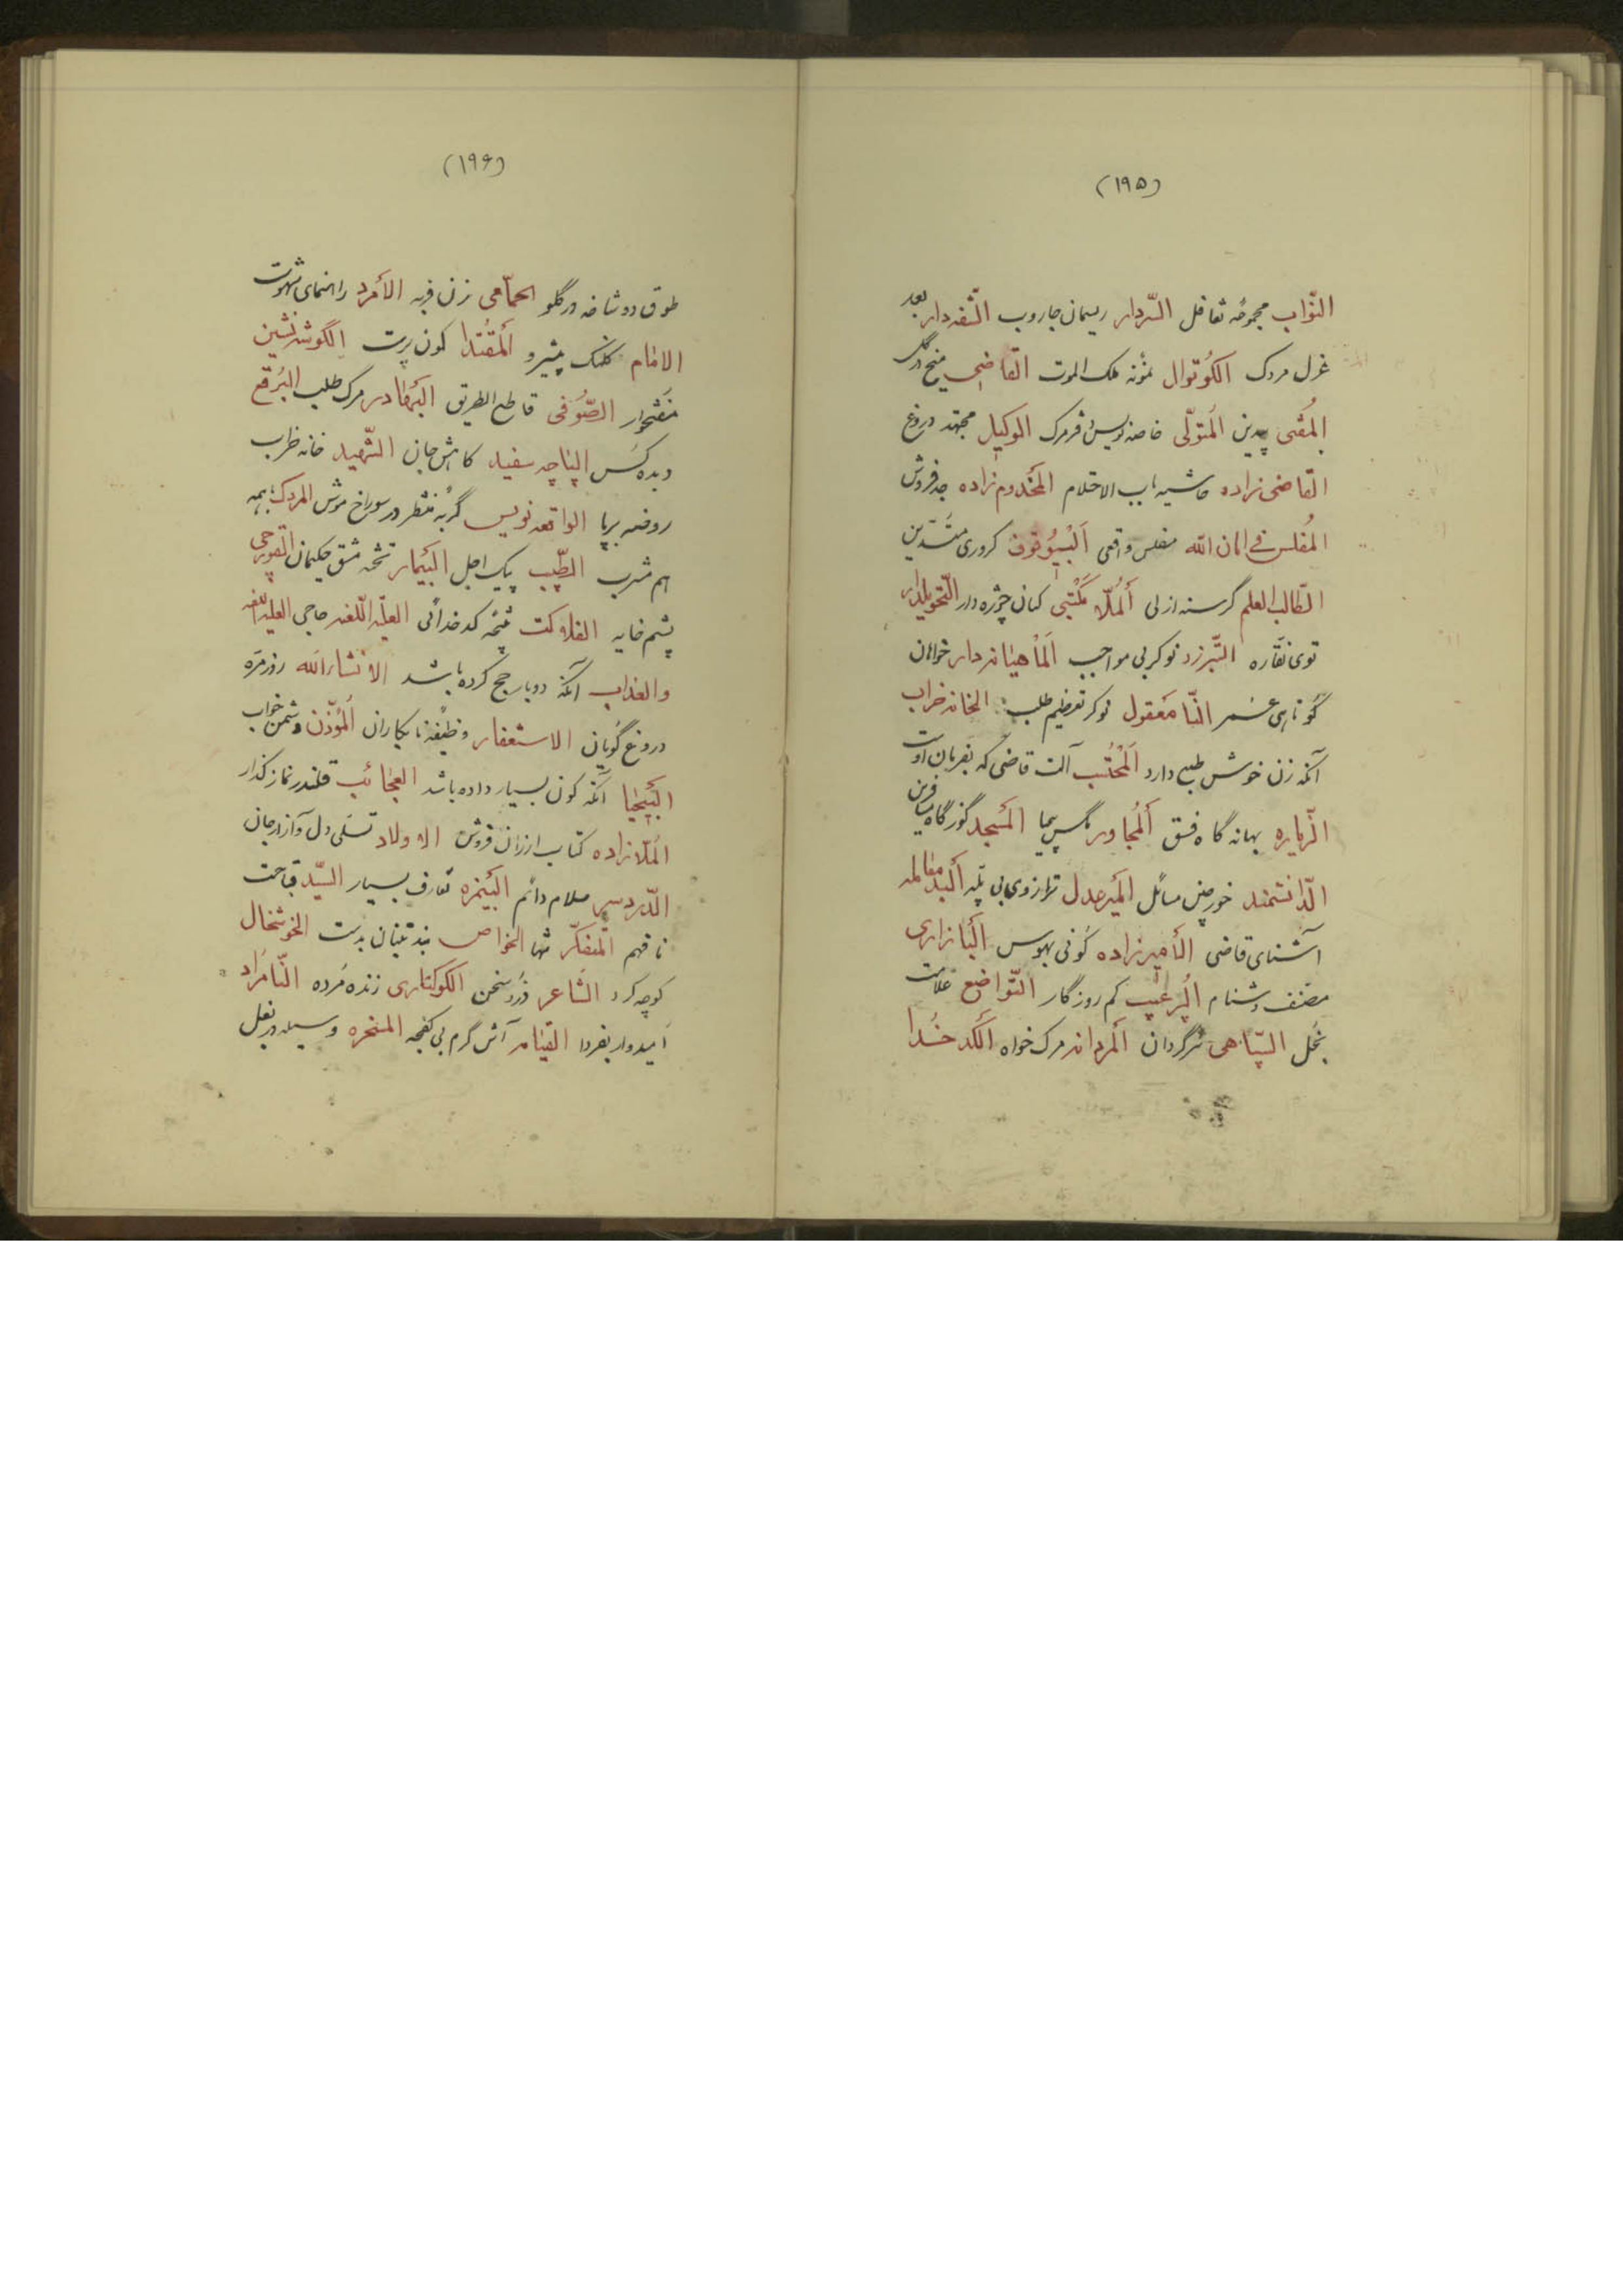 (۱۹۵)
النّواب مجموعهٔ تغافل السّردار ریسمان جاروب الشّقه‌دار بعد
غزل مردک الکُوتوال نمونه ملک الموت القاضی میخ در گل
المُفتی بیدین المُتولّی خاصه نویس دفتر مرک الوکیل مجتهد دروغ
القاضی زاده حاشیه باب الاحتلام المخدوم زاده جد فروش
المُفلس فی امان الله مفلس واقعی البیوقوف کروری متدین
الطّالب العلم گرسنه ازلی المُلّا مکتبی کمان چرّه دار التّحویلدار
توی نقّاره التّیرزد نوکر بی مواجب الماهیانه دار خواهان
کوتاهی عمر النّامعقول نوکر تعظیم طلب الخانه خراب
آنکه زن خوش طبع دارد المُحتسب آلت قاضی که بفرمان اوست
الزّیاره بهانه گاه فسق المُجاور مگس سیما المسجد گوزگاه مسافرین
الدّانشمند خورجین مسائل المیرعدل ترازوی بی پلّه البد معامله
آشنای قاضی الأمیرزاده کونی بهوس البازاری
مصنف دشنام الپرعیب کم روزگار التّواضع علامت
بخل السّپاهی سرگردان المردانه مرک خواه الکدخدا
(۱۹۶)
طوق دو شاخه در گلو الحمّامی زن قحبه الأمرد راهنمای شهوت
الامام کلنک پیشرو المُقتدا کون پرست الگوشه نشین
مفتخوار الصّوفی قاطع الطریق البهادر مرک طلب البُرقع
دیده کس الپاچه سفید کاهش جان الشّهید خانه خراب
روضه برپا الواقعه نویس گربهٔ منتظر در سوراخ موش المردک بهمه
هم مشرب الطّبیب پیک اجل البیمار تختهٔ مشق حکیمان القورچی
پشم خایه الفلاکت نتیجه کدخدائی العلیه اللّعنه حاجی العلیه اللعنه
والعذاب آنکه دوبار حج کرده باشد الانشاءالله روزمرّه
دروغ گویان الاستغفار وظیفهٔ نابکاران المُؤذّن دشمن خواب
البیحیا آنکه کون بسیار داده باشد العجائب قلندر نماز گذار
المُلّازاده کتاب ارزان فروش الاولاد تسلی دل و آزار جان
الدّردسر سلام دائم البیمزه تعارف بسیار السیّد قباحت
نافهم المُفکّر تنها الخواص بند تنبان بدست الخوشحال
کوچه گرد الشّاعر دزد سخن الکوکناری زنده مُرده النّامراد
اُمیدوار بفردا القیامه آش گرم بی کفچه المسخره وسیله در بغل